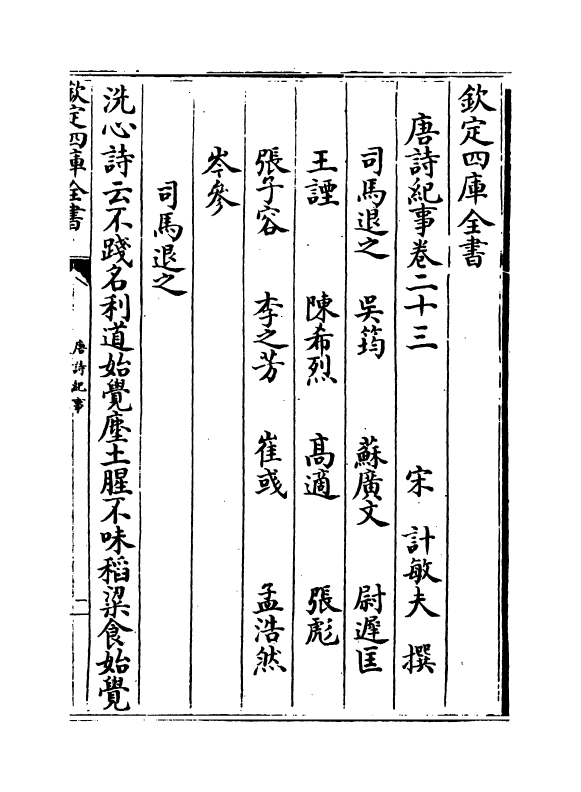 欽定四庫全書
唐詩紀事卷二十三　宋　計敏夫　撰
司馬退之　吳筠　蘇廣文　尉遲匡
王諲　陳希烈　髙適　張彪
張子容　李之芳　崔彧　孟浩然
岑參
司馬退之
洗心詩云不踐名利道始覺塵土腥不味稻粱食始覺
欽定四庫全書　唐詩紀事　一